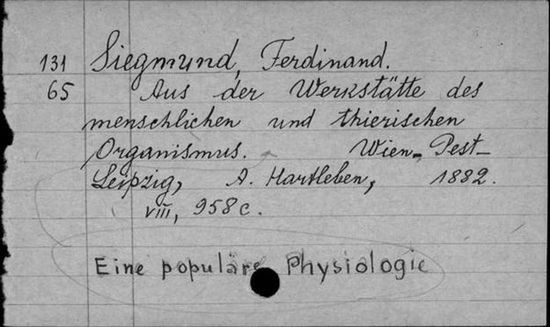 131 Siegmund, Ferdinand.
65 Aus der Werkstätte des
menschlichen und thierischen
Organismus. Wien-Pest-
Leipzig, A. Hartleben, 1882.
VIII, 958 c.
Eine populäre Physiologie